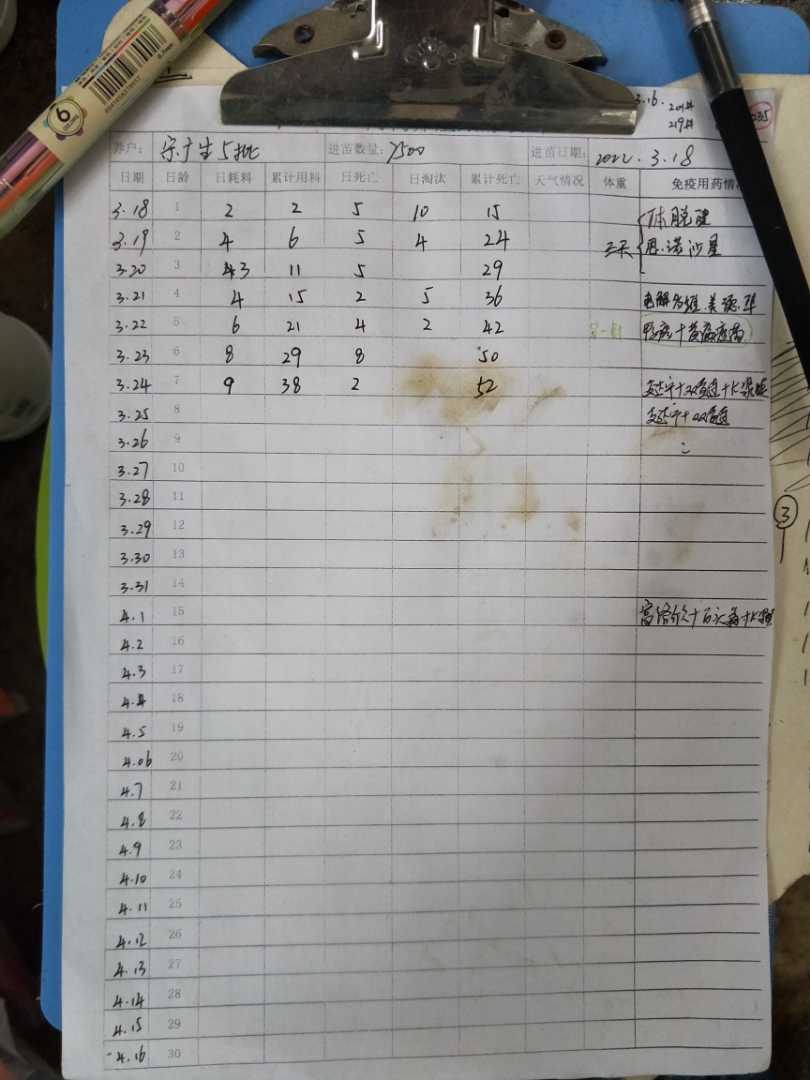 6
3.16.
219料
035
养户: 宋广生5批 进苗数量: 7500 进苗日期: 2022.3.18
日期 日龄 日耗料 累计用料 日死亡 日淘汰 累计死亡 天气情况 体重 免疫用药情
3.18 1 2 2 5 10 15
3.19 2 4 6 5 4 24 三天 恩诺沙星
3.20 3 11 5 29
3.21 4 4 15 2 5 36 电解多维
3.22 5 6 21 4 2 42
3.23 6 8 29 8 50
3.24 7 9 38 2 52
3.25 8
3.26 9
3.27 10
3.28 11
③
3.29 12
3.30 13
3.31 14
4.1 15
4.2 16
4.3 17
4.4 18
4.5 19
4.06 20
4.7 21
4.8 22
4.9 23
4.10 24
4.11 25
4.12 26
4.13 27
4.14 28
4.15 29
4.16 30